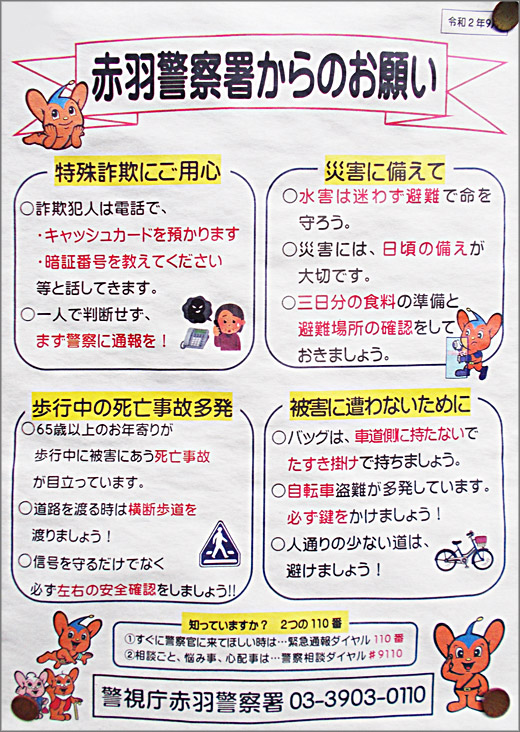 令和2年9
赤羽警察署からのお願い
特殊詐欺にご用心
○詐欺犯人は電話で、
・キャッシュカードを預かります
・暗証番号を教えてください
等と話してきます。
○一人で判断せず、
まず警察に通報を！
災害に備えて
○水害は迷わず避難で命を
守ろう。
○災害には、日頃の備えが
大切です。
○三日分の食料の準備と
避難場所の確認をして
おきましょう。
歩行中の死亡事故多発
○65歳以上のお年寄りが
歩行中に被害にあう死亡事故
が目立っています。
○道路を渡る時は横断歩道を
渡りましょう！
○信号を守るだけでなく
必ず左右の安全確認をしましょう!!
被害に遭わないために
○バッグは、車道側に持たないで
たすき掛けで持ちましょう。
○自転車盗難が多発しています。
必ず鍵をかけましょう！
○人通りの少ない道は、
避けましょう！
知っていますか？ 2つの110番
①すぐに警察官に来てほしい時は…緊急通報ダイヤル110番
②相談ごと、悩み事、心配事は…警察相談ダイヤル＃9110
警視庁赤羽警察署 03-3903-0110